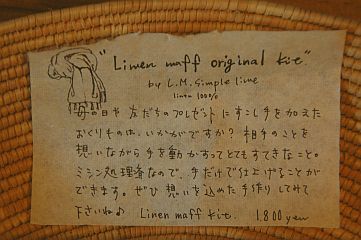 "Linen maff original kit"
by L.M. Simple line
linen 100%
母の日や 友だちのプレゼントに すこし手を加えた
おくりものは、いかがですか? 相手のことを
想いながら手を動かすってとてもすてきなこと。
ミシン処理済なので、手だけで仕上げることが
できます。ぜひ 想いを込めた手作りしてみて
下さいね♪ Linen maff kit. 1.800 yen